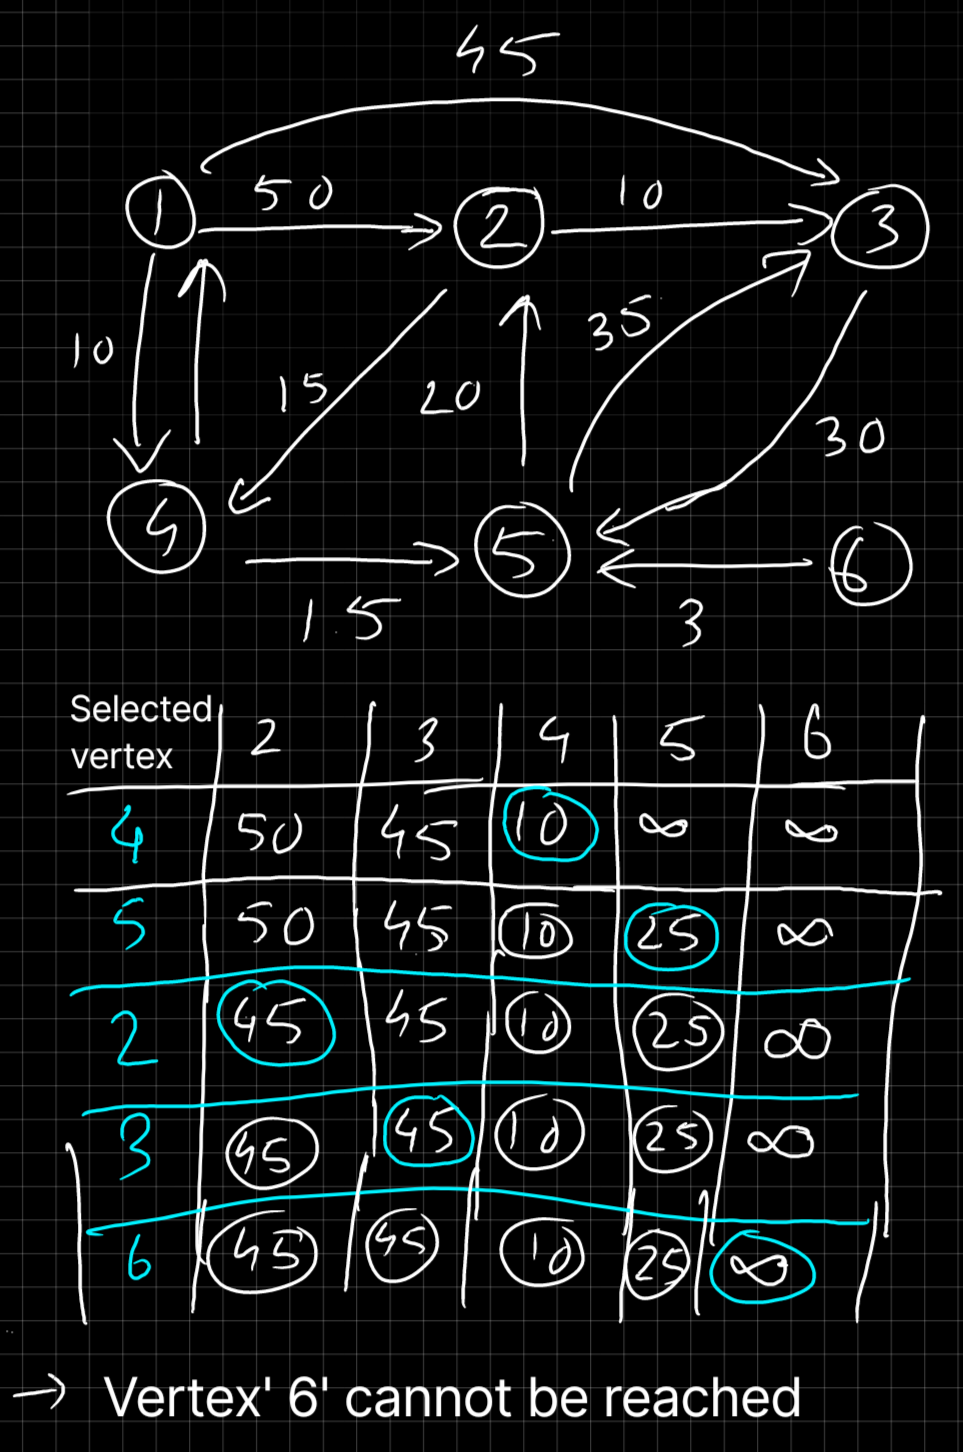 45
1 50 2 10 3
10 15 20 35 30
4 5 6
15 3
Selected vertex 2 3 4 5 6
4 50 45 10 ∞ ∞
5 50 45 10 25 ∞
2 45 45 10 25 ∞
3 45 45 10 25 ∞
6 45 45 10 25 ∞
→ Vertex' 6' cannot be reached